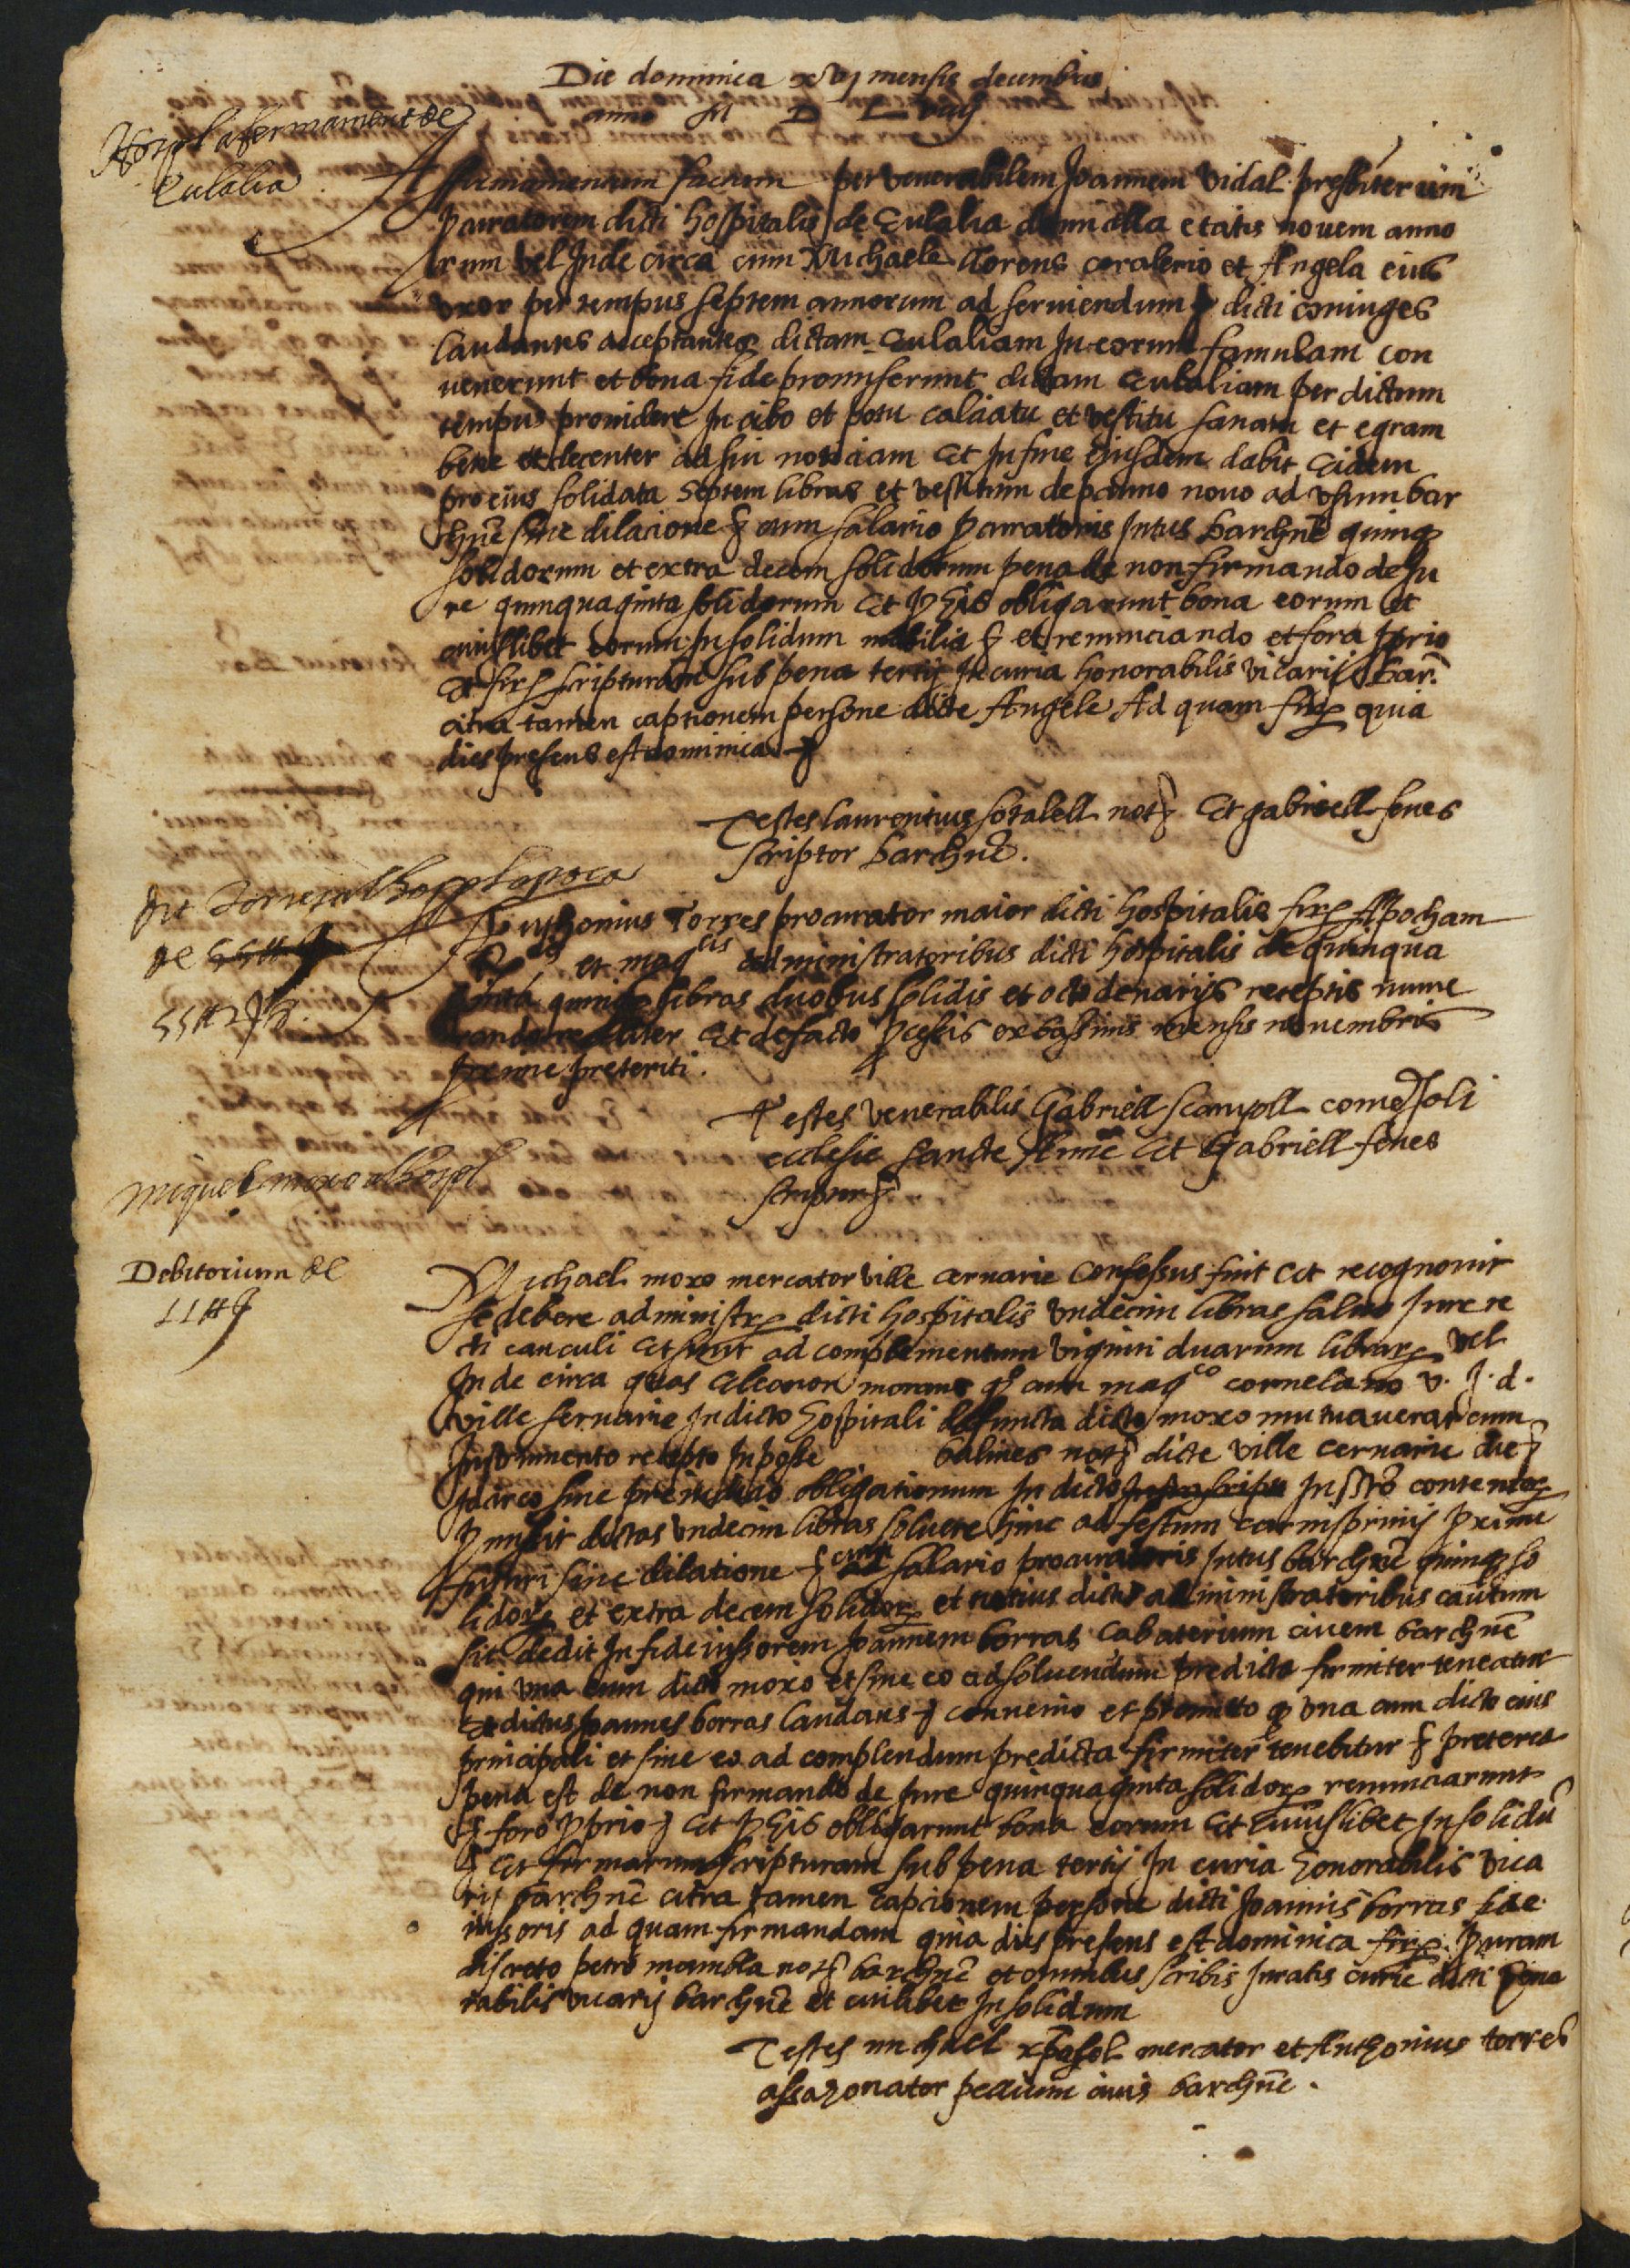 Die dominica xvj mensis decembris
anno M D L viij
Hospl afermament de
Eulalia
Affirmamentum factum per venerabilem Joannem Vidal presbiterum
procuratorem dicti hospitalis de Eulalia domicella etatis novem anno
rum vel Inde circa cum Michaele llorens coralerio et Angela eius
uxor per tempus septem annorum ad serviendum & dicti coniuges
laudantes acceptantesq dictam Eulaliam In eorum famulam con
venerunt et bona fide promiserunt dictam Eulaliam per dictum
tempus providere In cibo et potu calciatu et vestitu sanam et egram
bene et decenter ad sui noticiam Et In fine eiusdem dabit Eidem
pro eius solidata septem libras et vestitum de panno novo ad usum bar
chne sine dilatione & cum salario procuratoris Intus barchne quinq
solidorum et extra decem solidorum pena de non firmando de Ju
re quinquaginta solidorum Et p his obligarunt bona eorum et
cuiuslibet eorum Insolidum mobilia & et renunciando et foro proprio
Et firmarunt scripturam sub pena tertij In curia honorabilis vicarij bar.
citra tamen captionem persone dicte Angele Ad quam firmandam quia
dies presens est dominica &
Testes laurentius sotalell not& Et gabriell fenes
scriptor barchne.
Ant Torres al hospl apoca
de 55 ll
55 ll 2 s 8.
Anthonius Torres procurator maior dicti hospitalis firmavit Apocham
Rdis et magcis administratoribus dicti hospitalis de quinqua
ginta quinq libras duobus solidis et octo denarijs receptis nume
rando realiter Et de facto processis ex bassinis mensis novembris
proxime preteriti.
Testes venerabilis Gabriell scampoll comensoli
ecclesie sancte Anne Et Gabriell fenes
scriptor &
Miquel moxo al hospl
Debitorium de
11 ll
Michael moxo mercator ville cervarie confessus fuit Et recognovit
se debere administratoribus dicti hospitalis undecim libras salvo Jure re
cti calculi Et sunt ad complementum viginti duarum librarum vel
Inde circa quas Eleonor morant q cum magco cornelano v. J. d.
ville servarie In dicto hospitali defuncta dicto moxo mutuaverat cum
Instrumento recepto In posse balines not& dicte ville cervarie die &
Idcirco sine preiudicio obligationum In dicto Infrascripto Instro contentarum
promisit dictas undecim libras solvere hinc ad festum carnisprivij proxime
futuri sine dilatione & cum salario procuratoris Intus barchne quinq so
lidorum et extra decem solidorum et ut tutius dictis administratoribus cautum
sit dedit In fideiussorem Joannem borras cabaterium civem barchne
qui una cum dicto moxo et sine eo ad solvendum predicta firmiter teneatur
Et dictus Joannes borras laudans & convenio et promitto q una cum dicto eius
principali et sine eo ad complendum predicta firmiter tenebitur & preterea
pena est de non firmando de Jure quinquaginta solidorum renunciarunt
& foro proprio & Et p his obligarunt bona eorum Et cuiuslibet In solidum
& Et firmarunt scripturam sub pena tertij In curia honorabilis vica
rij barchne citra tamen capcionem persone dicti Joannis borras fide
iussoris ad quam firmandam quia dies presens est dominica firmarunt procuram
discreto petro mambla not& barchne et omnibus scribis Juratis curie dicti hono
rabilis vicarij barchne et cuilibet In solidum
Testes michael mercator et Anthonius torres
assaonator pellium civis barchne.